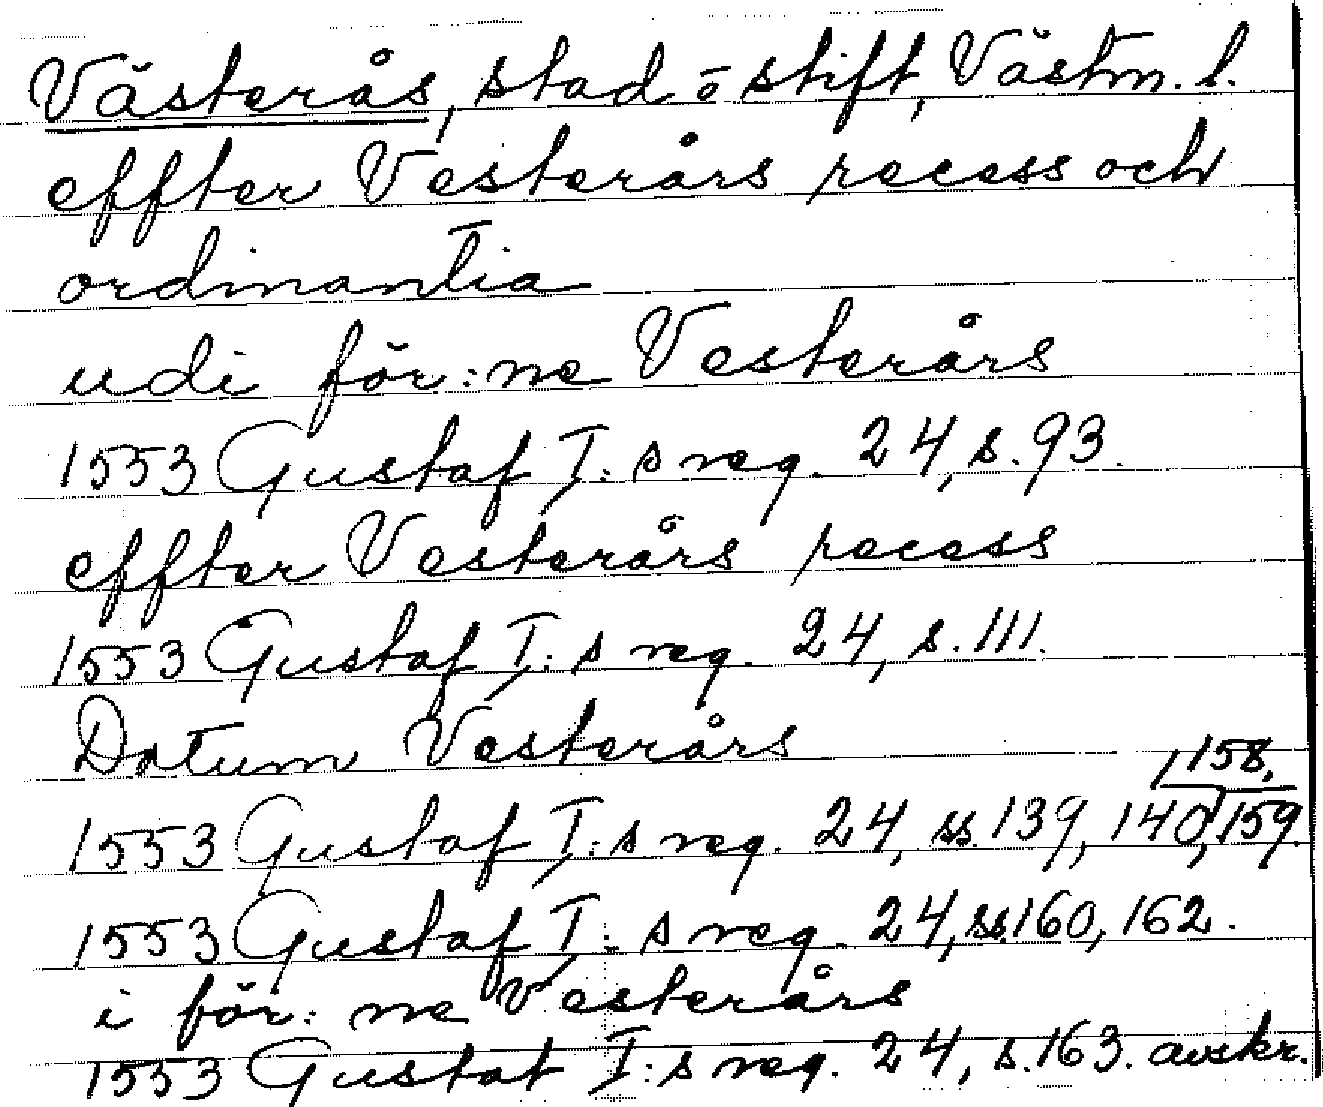 Västerås, stad o stift, Västm. l.
effter Vesterårs recess och
ordinantia
udi för:ne Vesterårs
1553 Gustaf I:s reg. 24, s. 93.
effter Vesterårs recess
1553 Gustaf I:s reg. 24, s. 111.
Datum Vesterårs
1553 Gustaf I:s reg. 24, ss. 139, 140, 158, 159.
1553 Gustaf I:s reg. 24, ss. 160, 162.
i för:ne Vesterårs
1553 Gustaf I:s reg. 24, s. 163. avskr.